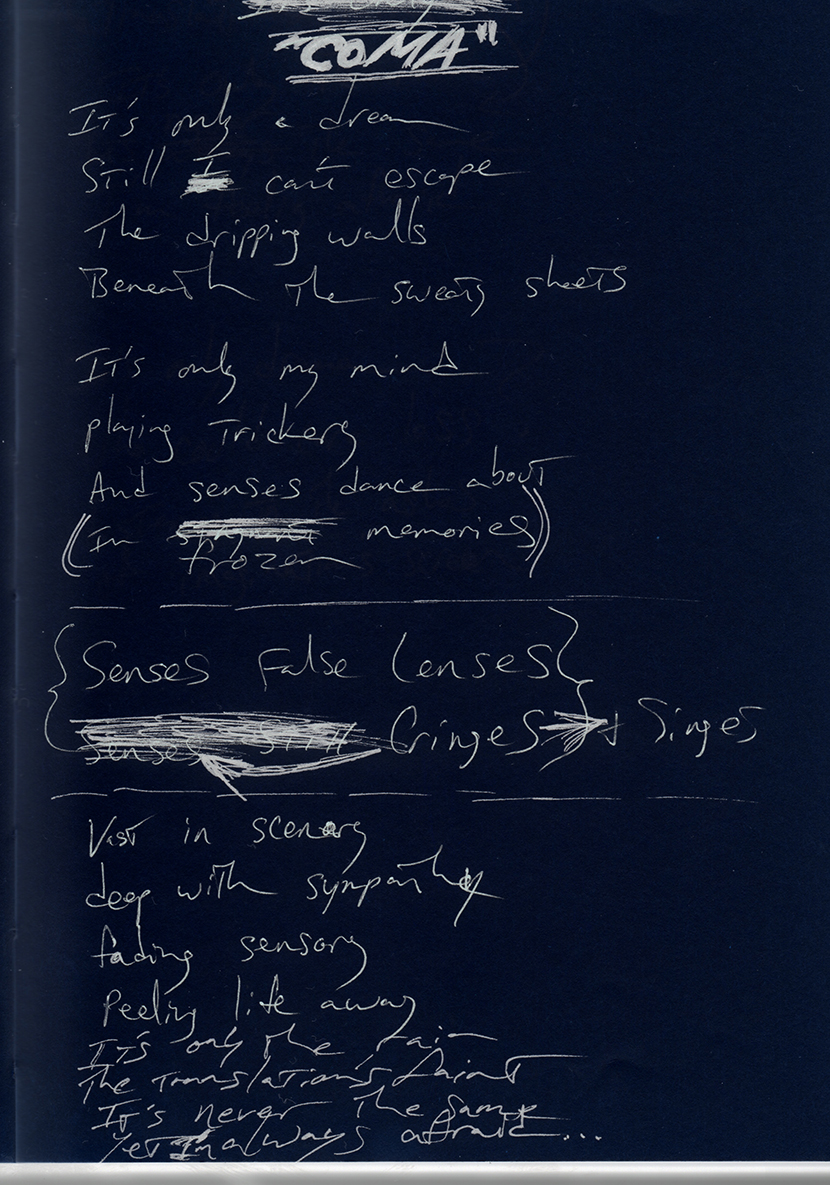 "COMA"
It's only a dream
Still I can't escape
The dripping walls
Beneath the sweaty sheets
It's only my mind
playing Trickery
And senses dance about
(In memories)
frozen
{Senses False Lenses}
senses still Cringes + Singes
Vast in scenery
deep with sympathy
fading sensory
Peeling life away
It's only the
The translation's faint
It's never the same
Yet I'm always afraid...